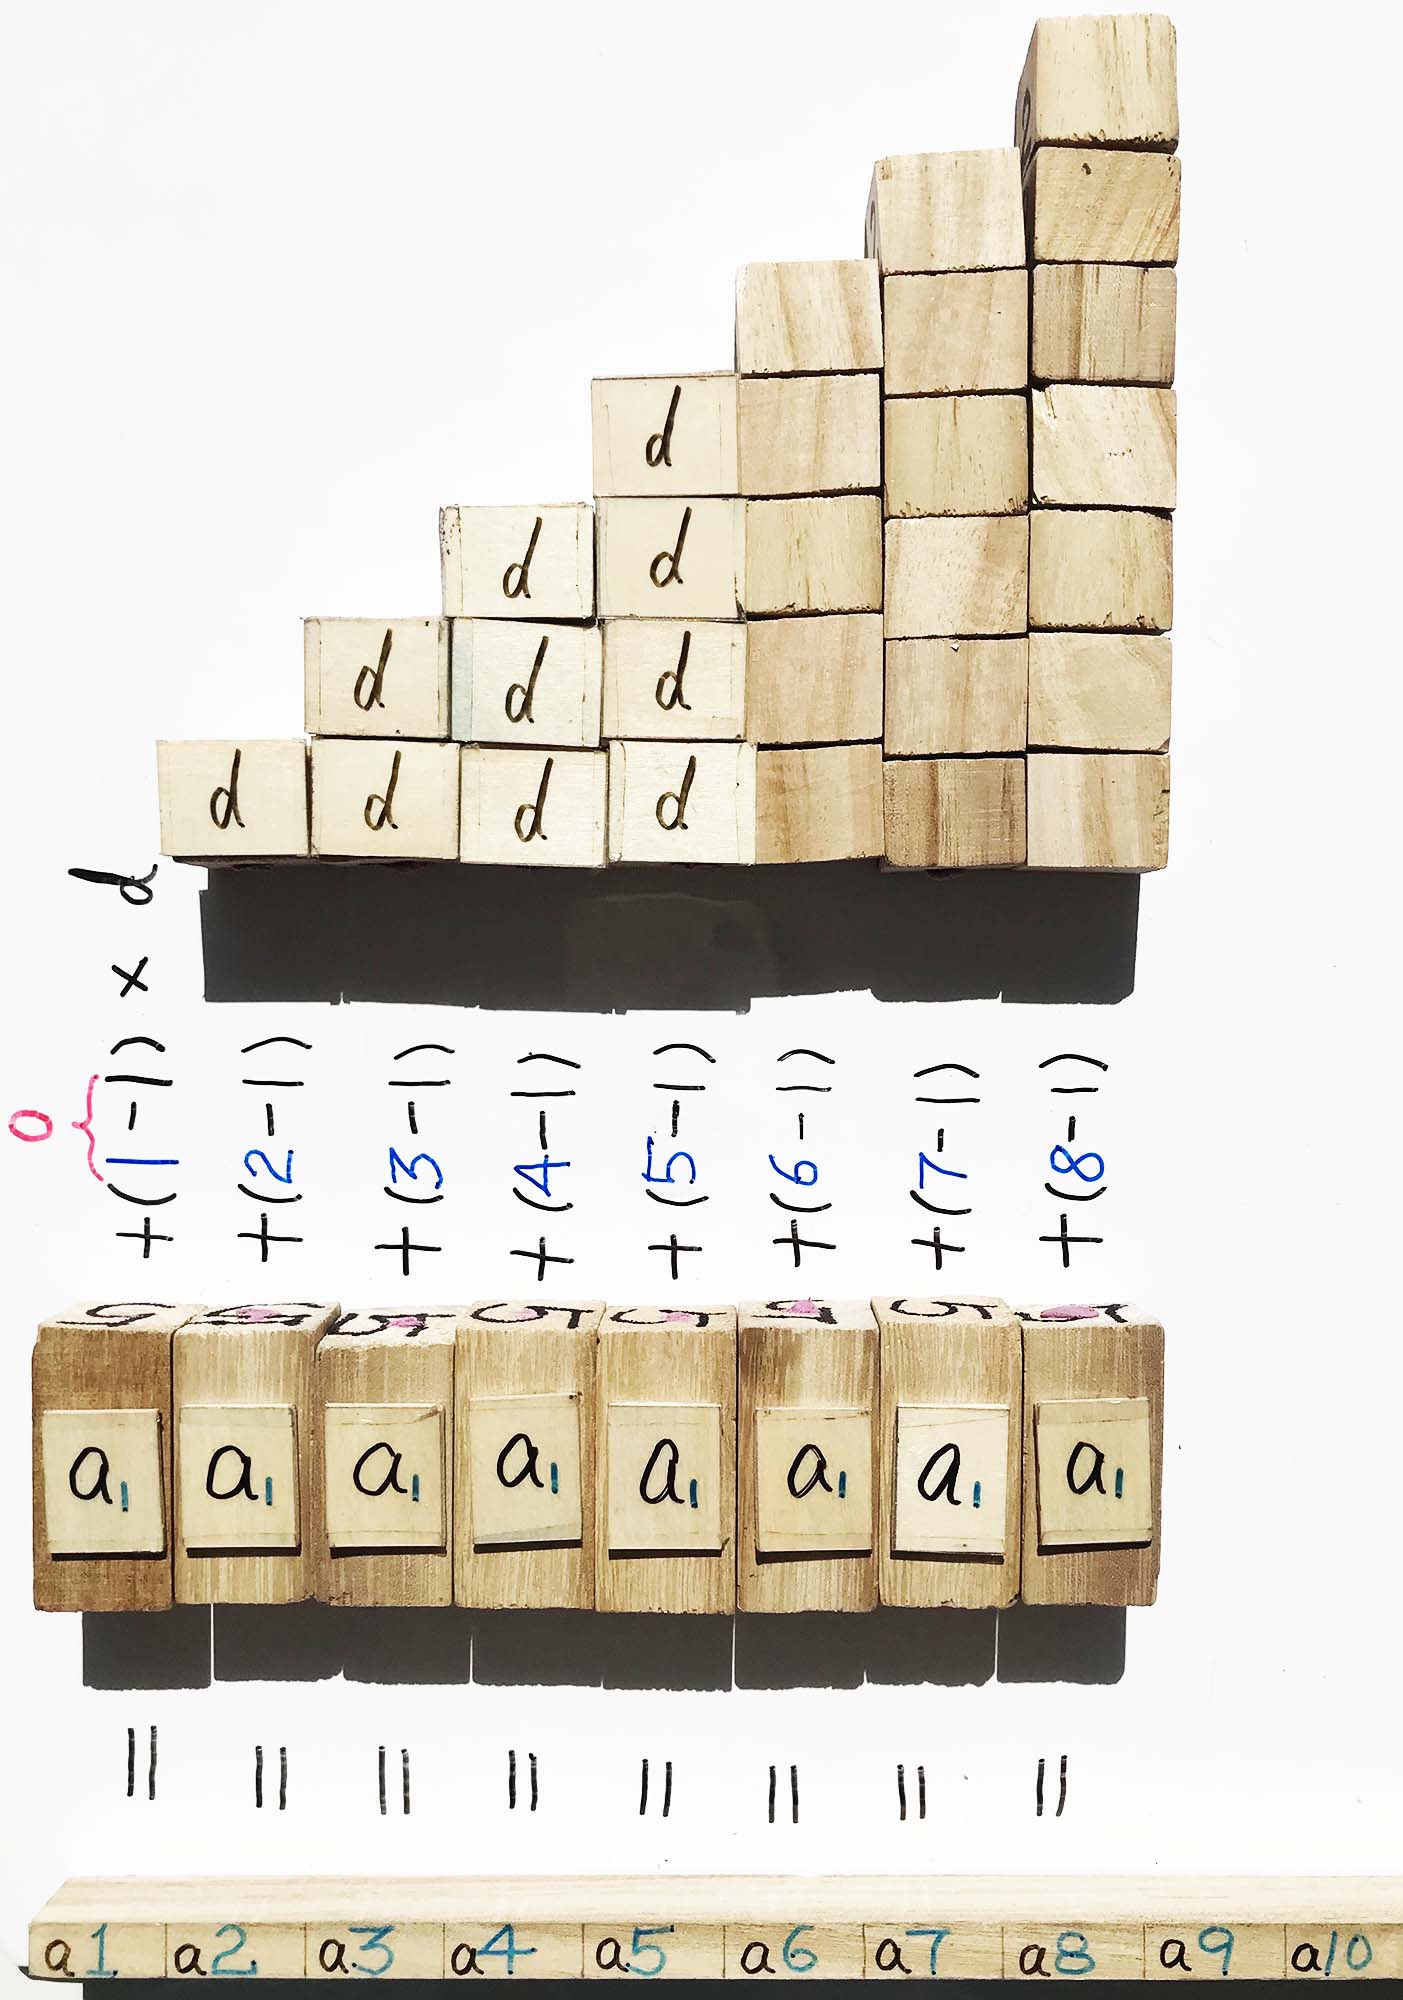 d
d d
d d d
d d d d
0
+(1-1) × d
+(2-1)
+(3-1)
+(4-1)
+(5-1)
+(6-1)
+(7-1)
+(8-1)
5 5 5 5 5 5 5 5
a₁ a₁ a₁ a₁ a₁ a₁ a₁ a₁
= = = = = = = =
a1 a2 a3 a4 a5 a6 a7 a8 a9 a10